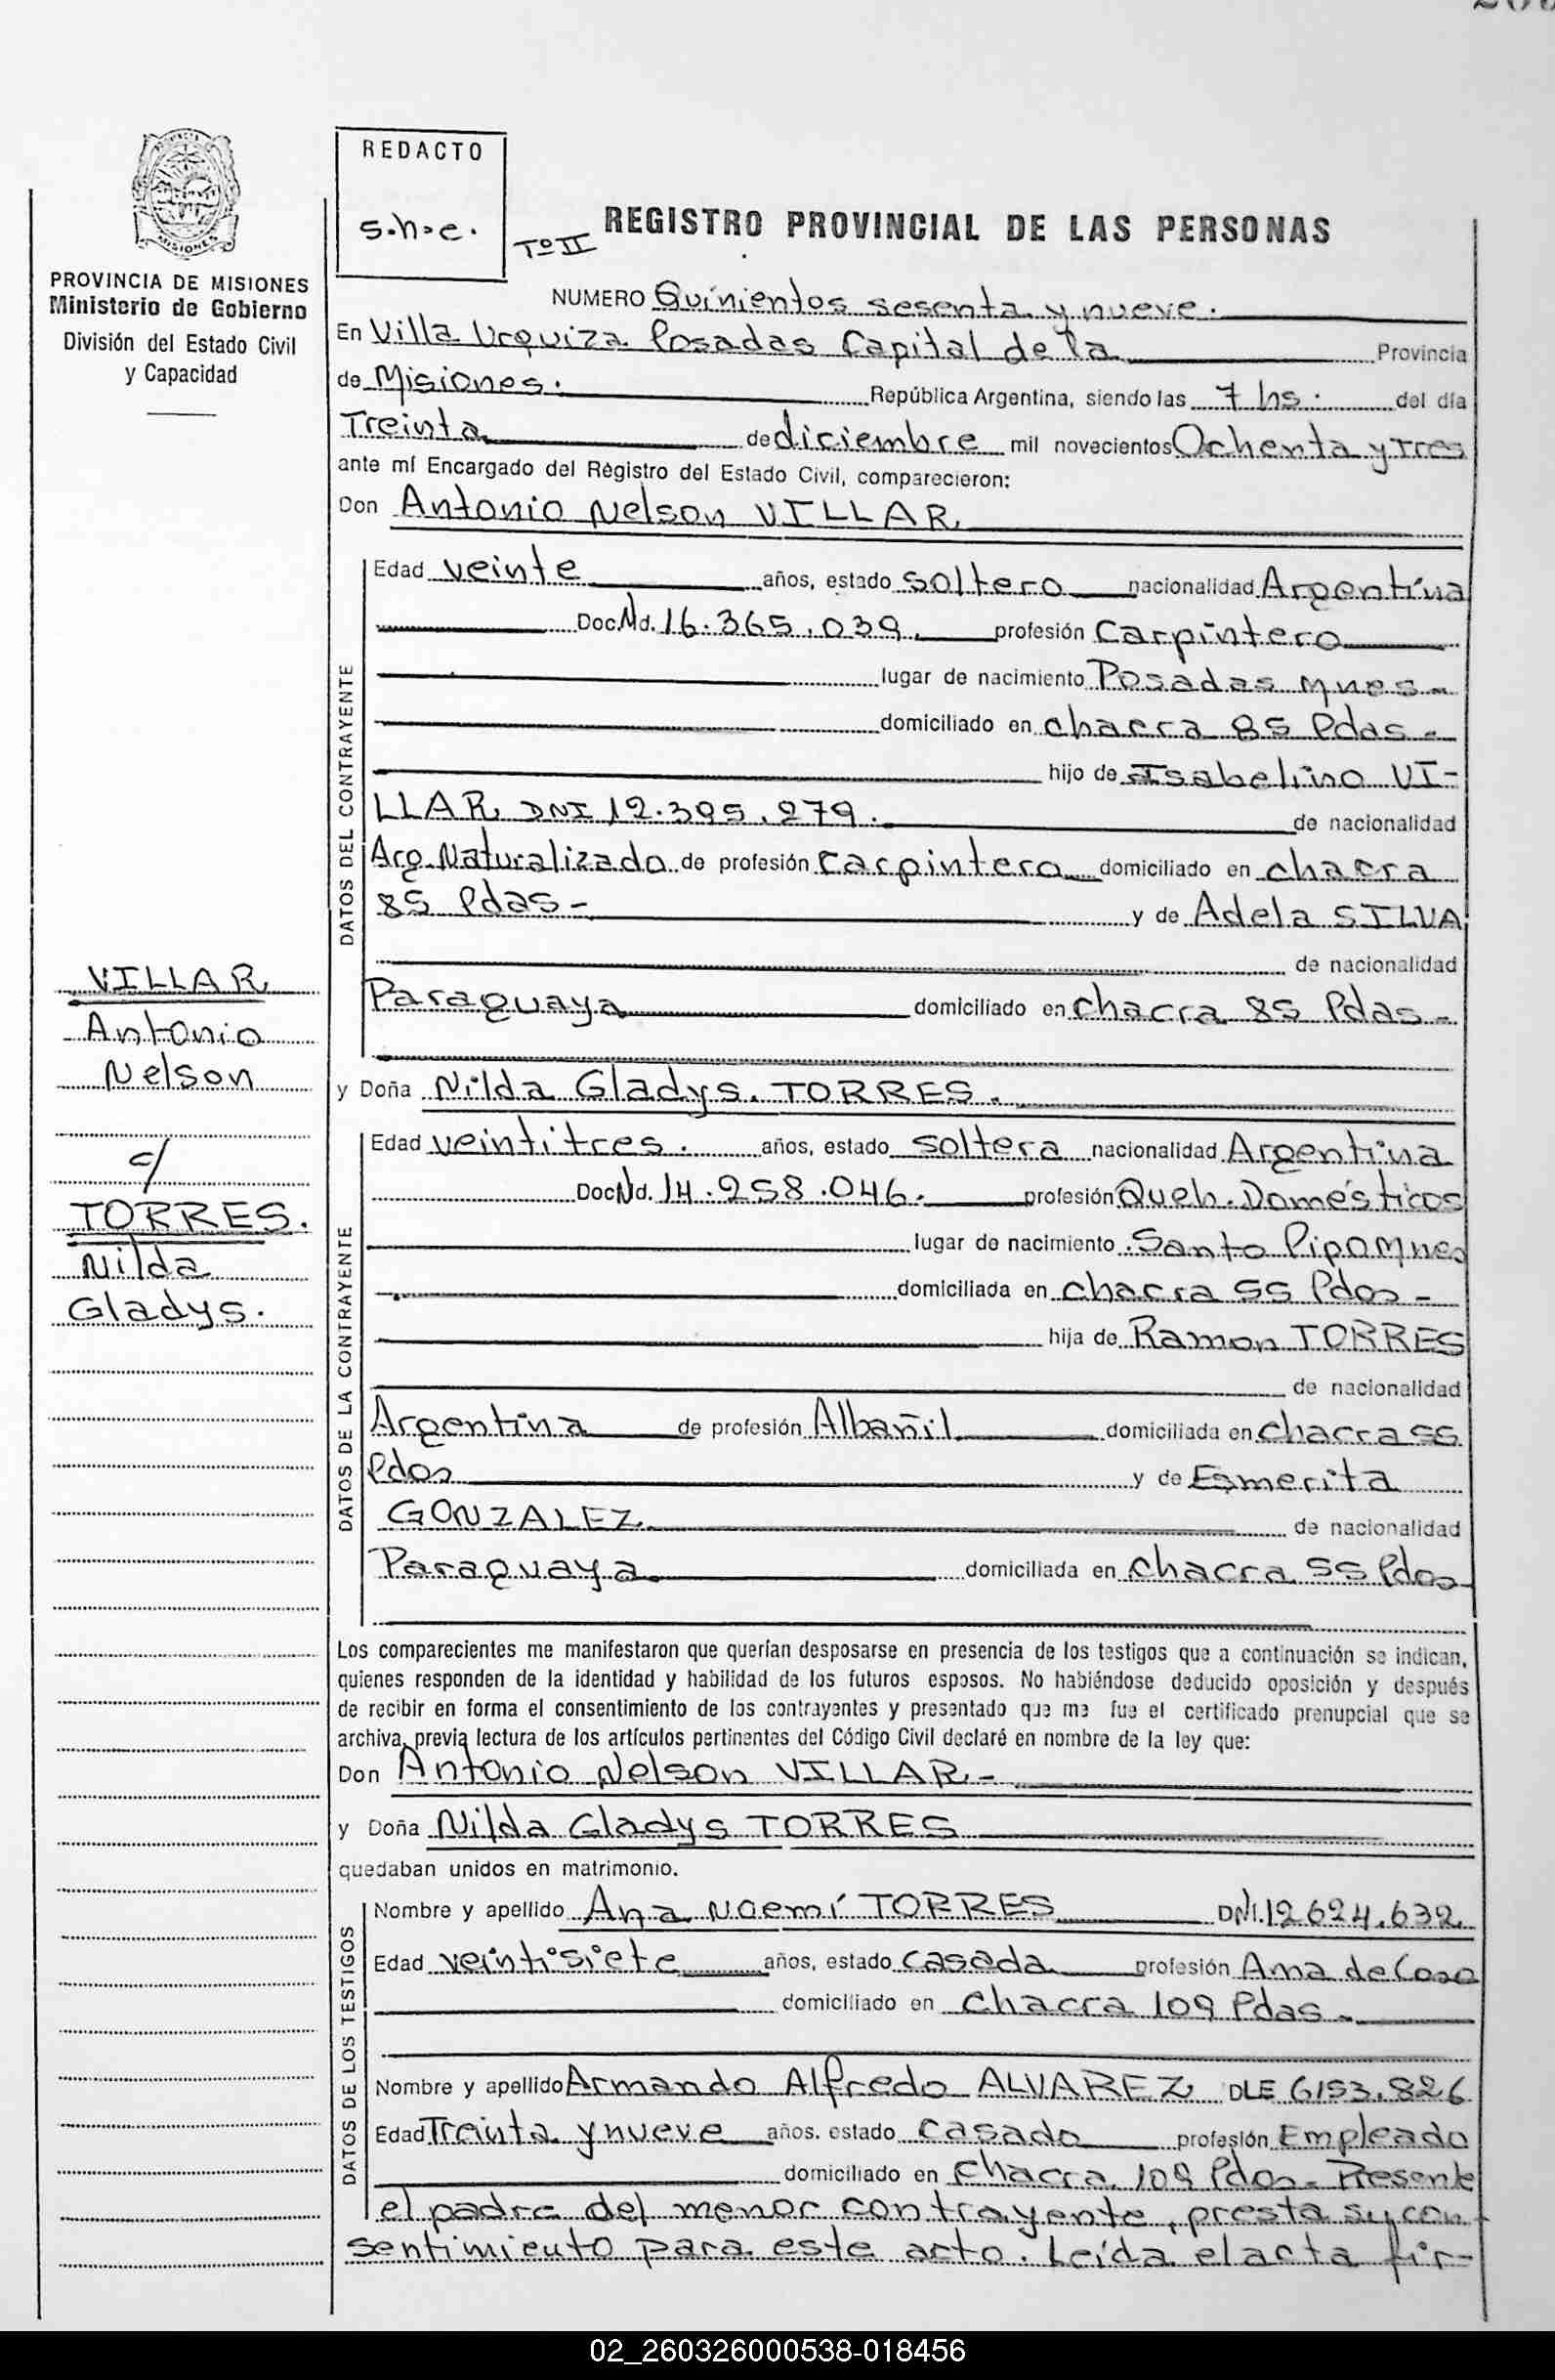 REDACTO
s.h.e.
Tº II
REGISTRO PROVINCIAL DE LAS PERSONAS
PROVINCIA DE MISIONES
Ministerio de Gobierno
División del Estado Civil
y Capacidad
NUMERO Quinientos sesenta y nueve.
En Villa Urquiza Posadas Capital de la Provincia
de Misiones. República Argentina, siendo las 7 hs. del día
Treinta de diciembre mil novecientos Ochenta y Tres
ante mí Encargado del Registro del Estado Civil, comparecieron:
Don Antonio Nelson VILLAR
DATOS DEL CONTRAYENTE
Edad veinte años, estado soltero nacionalidad Argentina
Doc. Nd. 16.365.039. profesión Carpintero
lugar de nacimiento Posadas Mnes-
domiciliado en chacra 85 Pdas-
hijo de Isabelino VI-
LLAR DNI 12.395.279. de nacionalidad
Arg. Naturalizado de profesión carpintero domiciliado en chacra
85 Pdas- y de Adela SILVA
de nacionalidad
Paraguaya domiciliado en chacra 85 Pdas-
VILLAR
Antonio
Nelson
c/
TORRES.
Nilda
Gladys.
y Doña Nilda Gladys. TORRES.
DATOS DE LA CONTRAYENTE
Edad veintitres. años, estado soltera nacionalidad Argentina
Doc Nd. 14.258.046. profesión Queh. Domésticos
lugar de nacimiento Santo Pipo Mnes
domiciliada en chacra 55 Pdas-
hija de Ramon TORRES
de nacionalidad
Argentina de profesión Albañil domiciliada en chacra 55
Pdas y de Esmerita
GONZALEZ de nacionalidad
Paraguaya domiciliada en chacra 55 Pdas-
Los comparecientes me manifestaron que querían desposarse en presencia de los testigos que a continuación se indican,
quienes responden de la identidad y habilidad de los futuros esposos. No habiéndose deducido oposición y después
de recibir en forma el consentimiento de los contrayentes y presentado que me fue el certificado prenupcial que se
archiva, previa lectura de los artículos pertinentes del Código Civil declaré en nombre de la ley que:
Don Antonio Nelson VILLAR-
y Doña Nilda Gladys TORRES
quedaban unidos en matrimonio.
DATOS DE LOS TESTIGOS
Nombre y apellido Ana Noemí TORRES DNI. 12.624.632
Edad veintisiete años, estado casada profesión Ama de Casa
domiciliado en chacra 109 Pdas-
Nombre y apellido Armando Alfredo ALVAREZ DLE 6153.826
Edad Treinta y nueve años. estado casado profesión Empleado
domiciliado en chacra 109 Pdas- Presente
el padre del menor contrayente, presta su con-
sentimiento para este acto. Leída el acta fir-
02_260326000538-018456